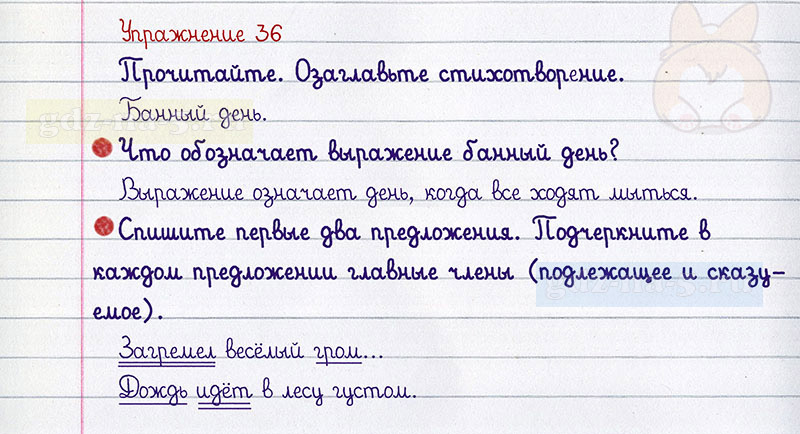 Упражнение 36
Прочитайте. Озаглавьте стихотворение.
Банный день.
Что обозначает выражение банный день?
Выражение означает день, когда все ходят мыться.
Спишите первые два предложения. Подчеркните в
каждом предложении главные члены (подлежащее и сказу-
емое).
Загремел весёлый гром...
Дождь идёт в лесу густом.